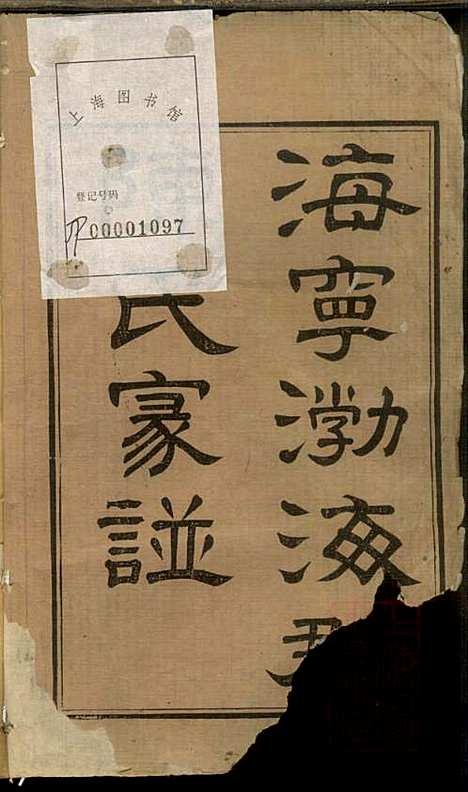 上海图书馆
登记号码
JP 00001097
海寧渤海
氏家譜